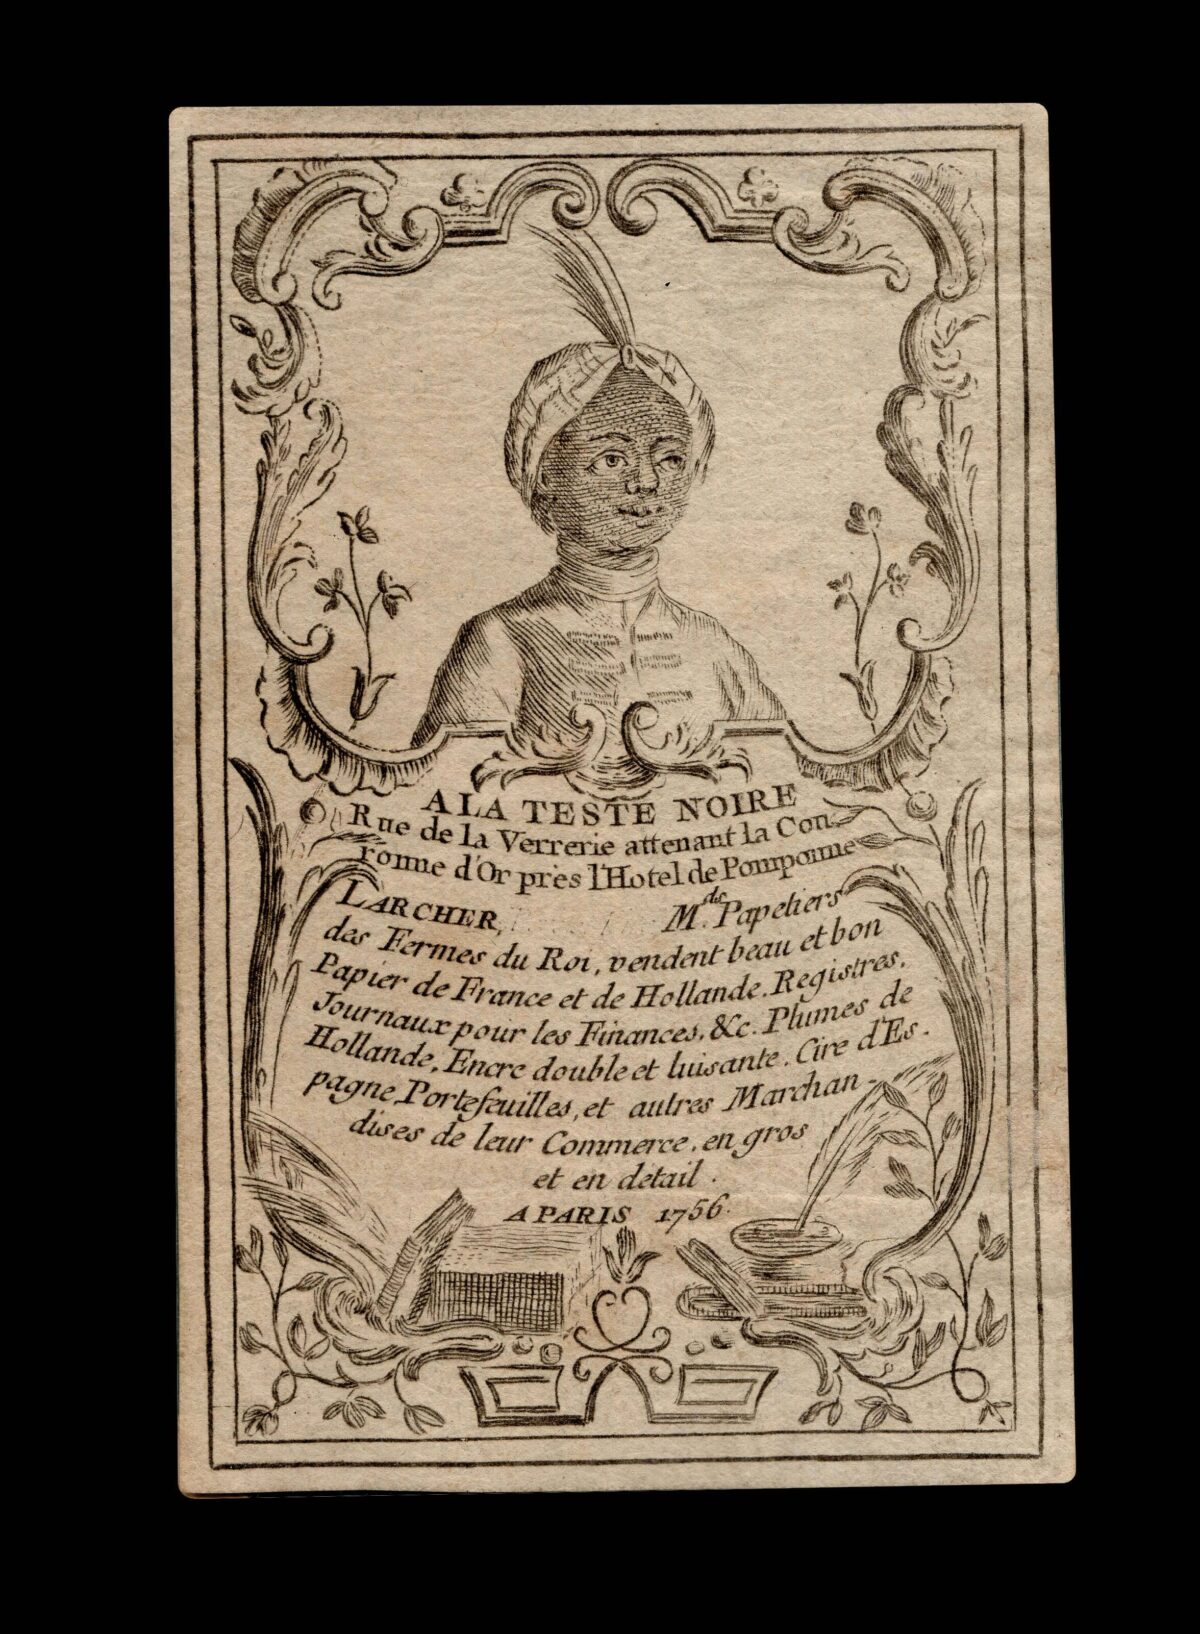 A LA TESTE NOIRE
Rue de la Verrerie attenant la Cou
ronne d'Or près l'Hotel de Pomponne
LARCHER, M.ds Papetiers
des Fermes du Roi, vendent beau et bon
Papier de France et de Hollande. Registres.
Journaux pour les Finances, &c. Plumes de
Hollande, Encre double et luisante. Cire d'Es-
pagne, Portefeuilles, et autres Marchan-
dises de leur Commerce, en gros
et en detail.
A PARIS 1756.